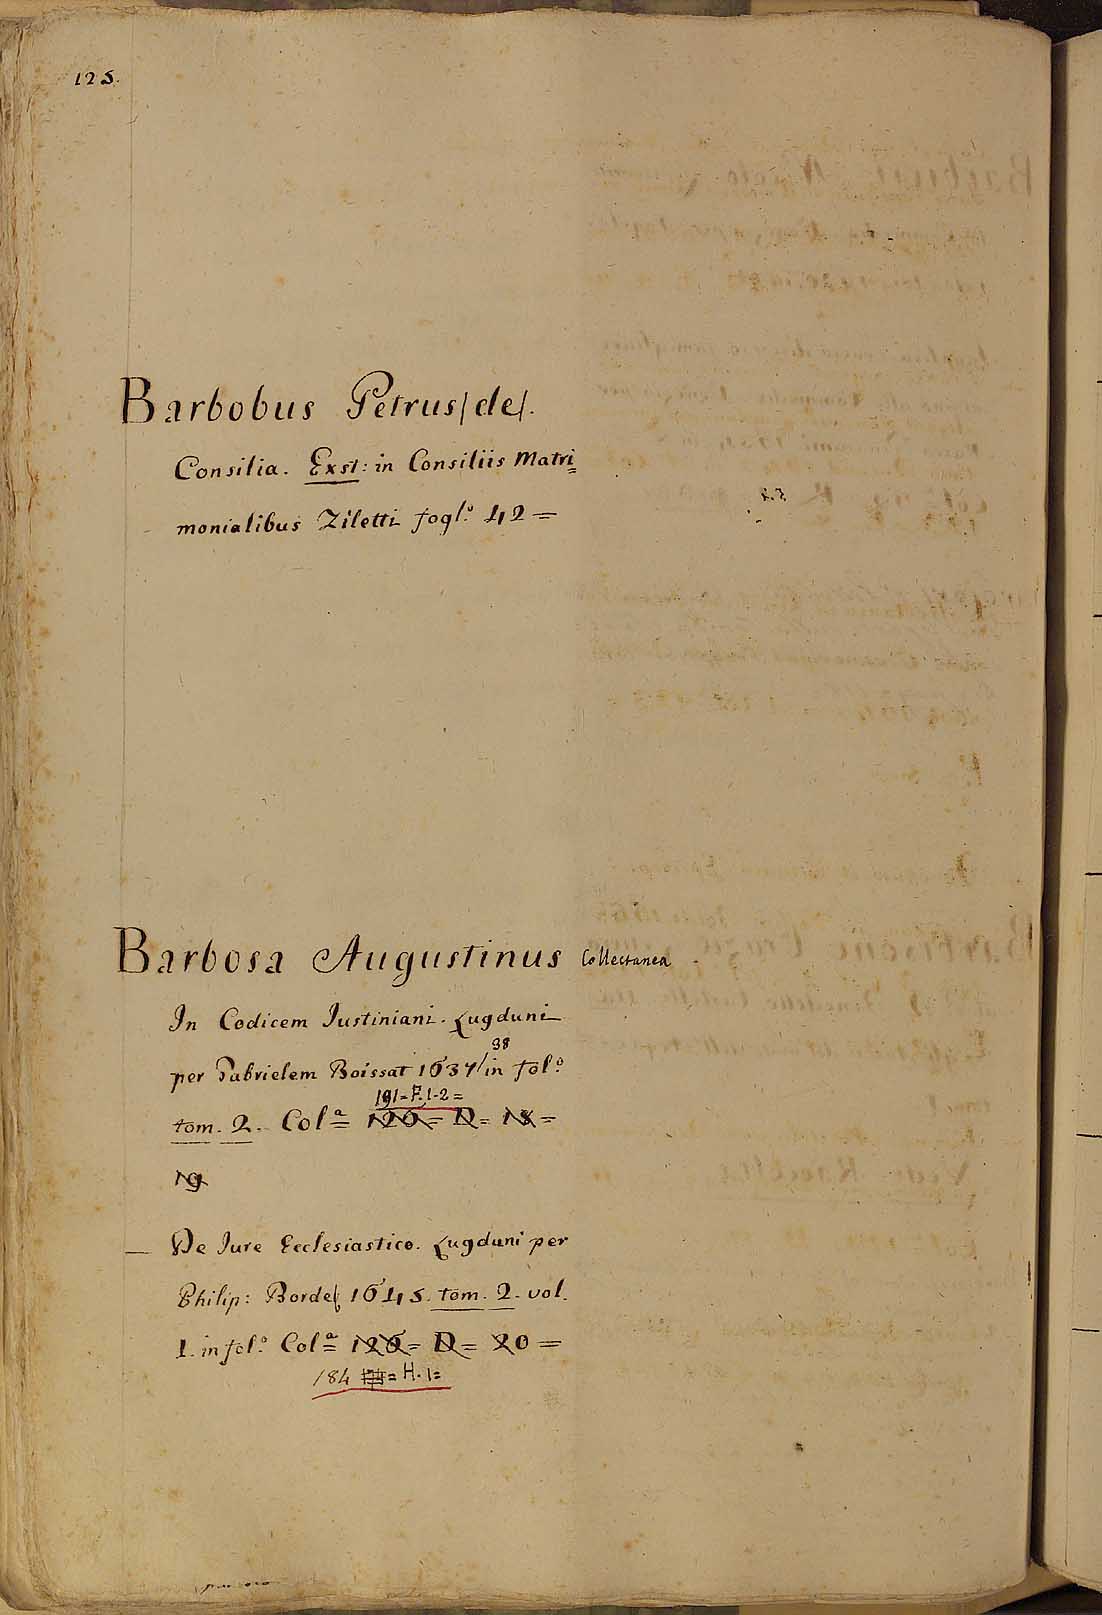 125.
Barbobus Petrus/de/.
Consilia. Exst: in Consiliis Matri=
monialibus Ziletti fogl.º 42=
Barbosa Augustinus Collectanea
In Codicem Iustiniani. Lugduni
38
per Gabrielem Boissat 1637/in fol.º
191=F.1-2=
tom. 2. Col.ª= 126= D= 18=
19
— De Iure Ecclesiastico. Lugduni per
Philip: Borde/ 1645. tom. 2. vol.
1. in fol.º Col.ª= 126= D= 20=
184 = H. 1=